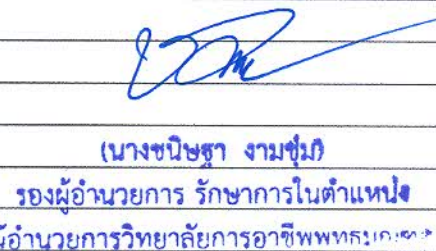 (นางชนิษฐา งามชุ่ม)
รองผู้อำนวยการ รักษาการในตำแหน่ง
ผู้อำนวยการวิทยาลัยการอาชีพพุทธมณฑล